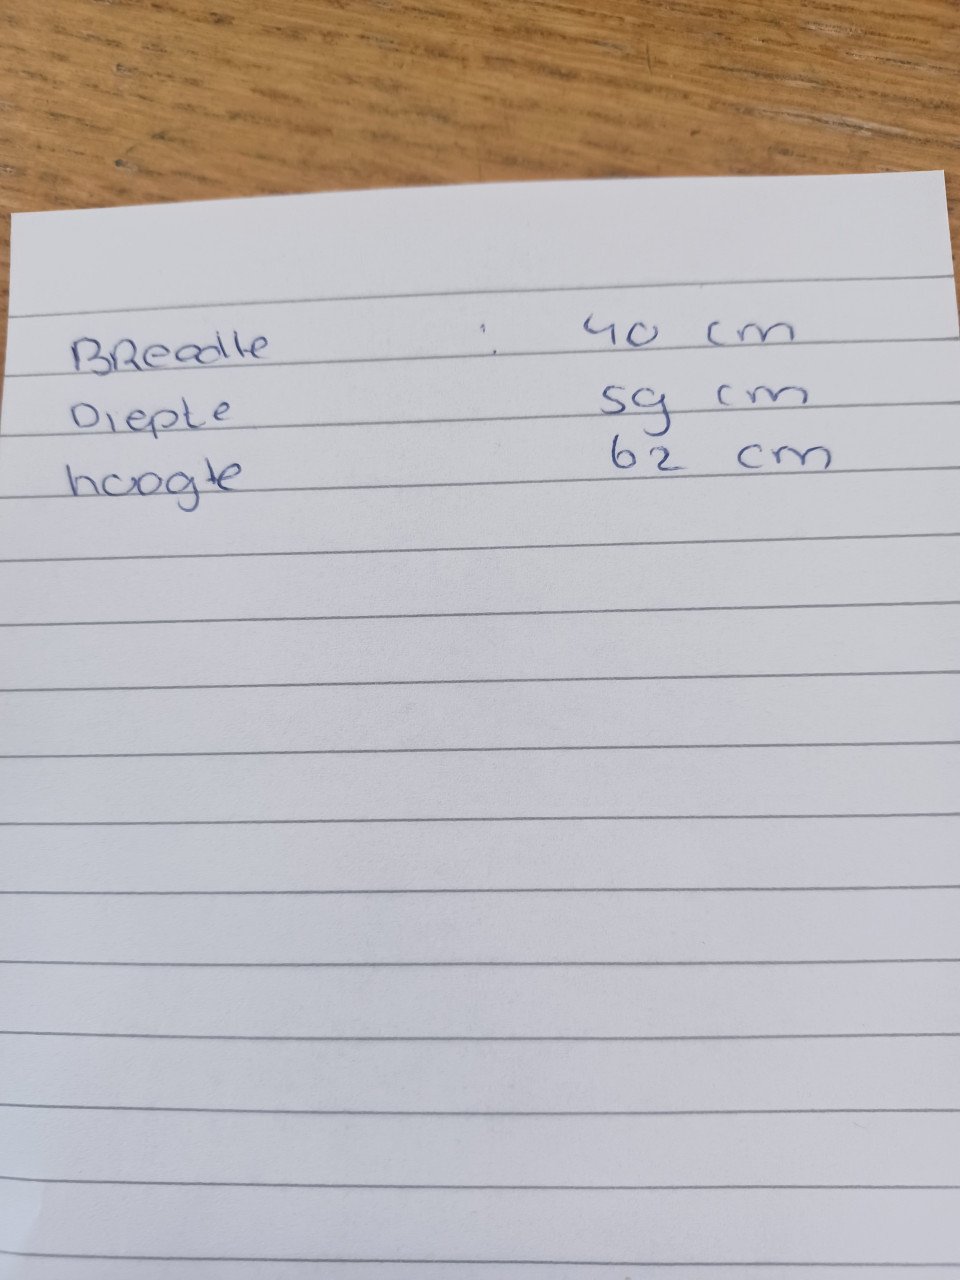 BReedte : 40 cm
Diepte 59 cm
hoogte 62 cm